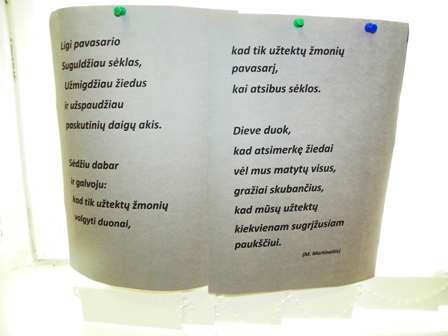 Ligi pavasario
Suguldžiau sėklas,
Užmigdžiau žiedus
ir užspaudžiau
paskutinių daigų akis.
Sėdžiu dabar
ir galvoju:
kad tik užtektų žmonių
valgyti duonai,
kad tik užtektų žmonių
pavasarį,
kai atsibus sėklos.
Dieve duok,
kad atsimerkę žiedai
vėl mus matytų visus,
gražiai skubančius,
kad mūsų užtektų
kiekvienam sugrįžusiam
paukščiui.
(M. Martinaitis)